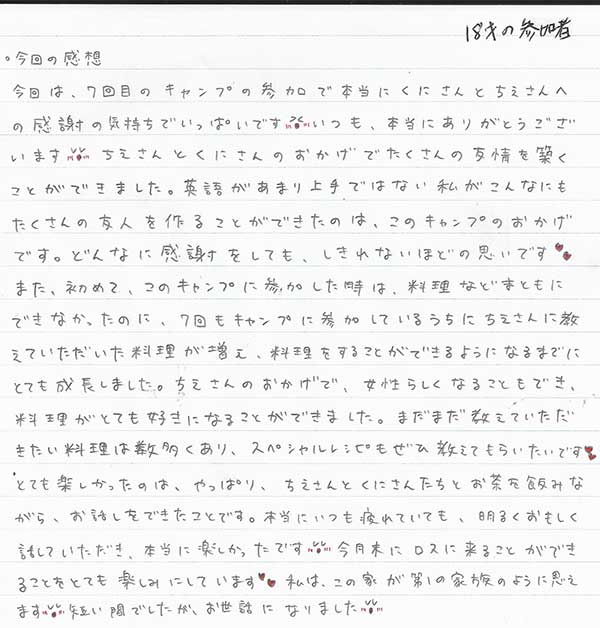 18才の参加者
。今回の感想
今回は、7回目のキャンプの参加で本当にくにさんとちえさんへ
の感謝の気持ちでいっぱいです いつも、本当にありがとうござ
います ちえさんとくにさんのおかげでたくさんの友情を築く
ことができました。英語があまり上手ではない私がこんなにも
たくさんの友人を作ることができたのは、このキャンプのおかげ
です。どんなに感謝をしても、しきれないほどの思いです
また、初めて、このキャンプに参加した時は、料理などまともに
できなかったのに、7回もキャンプに参加しているうちにちえさんに教
えていただいた料理が増え、料理をすることができるようになるまでに
とても成長しました。ちえさんのおかげで、女性らしくなることもでき、
料理がとても好きになることができました。まだまだ教えていただ
きたい料理は数多くあり、スペシャルレシピもぜひ教えてもらいたいです
とても楽しかったのは、やっぱり、ちえさんとくにさんたちとお茶を飲みな
がら、お話しをできたことです。本当にいつも疲れていても、明るくおもしく
話していただき、本当に楽しかったです 今月末にロスに来ることができ
ることをとても楽しみにしています 私は、この家が第1の家族のように思え
ます 短い間でしたが、お世話になりました